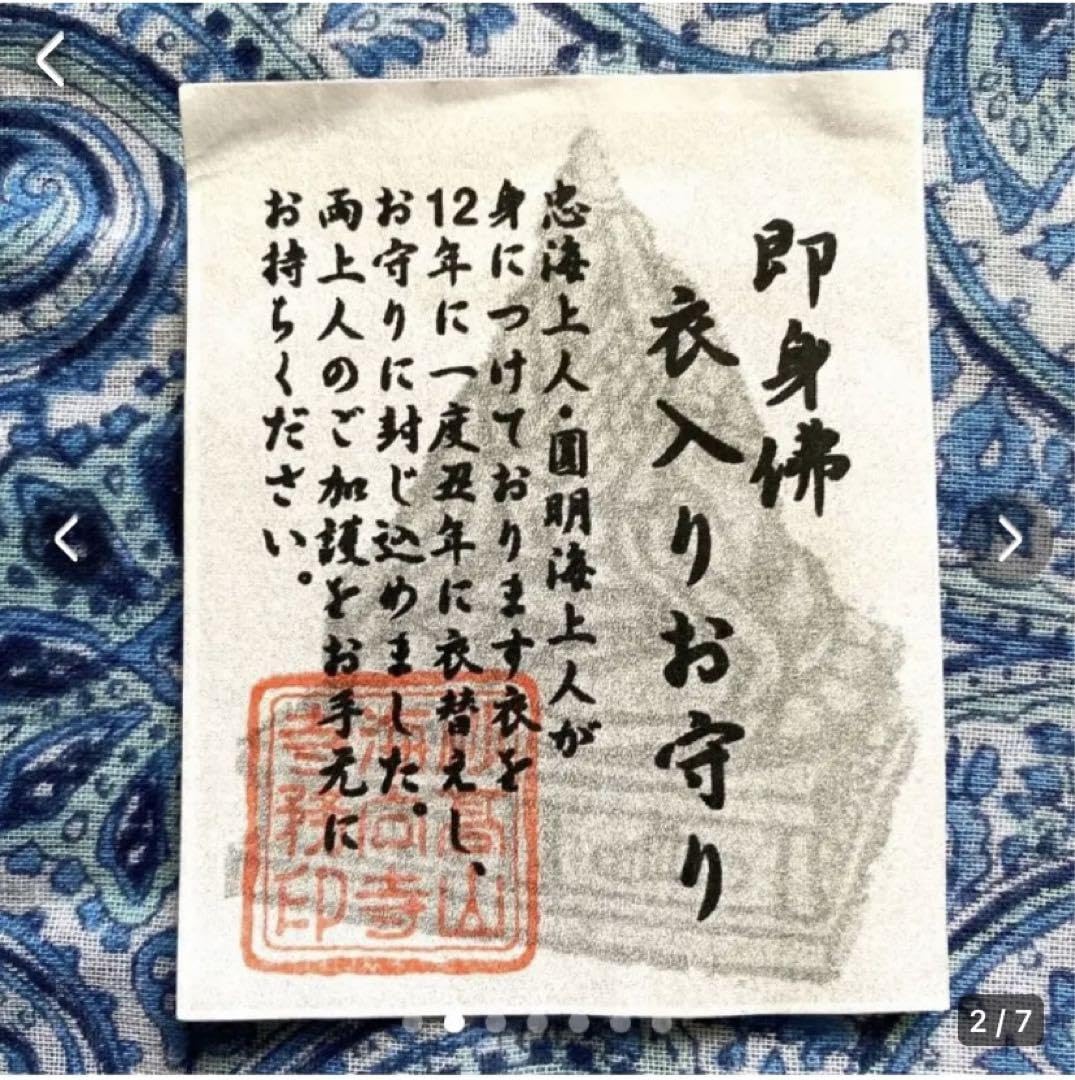 即身佛
衣入りお守り
忠海上人・圓明海上人が
身につけております衣を
12年に一度丑年に衣替えし、
お守りに封じ込めました。
両上人のご加護をお手元に
お持ちください。
砂高山
海向寺
寺務印
2/7